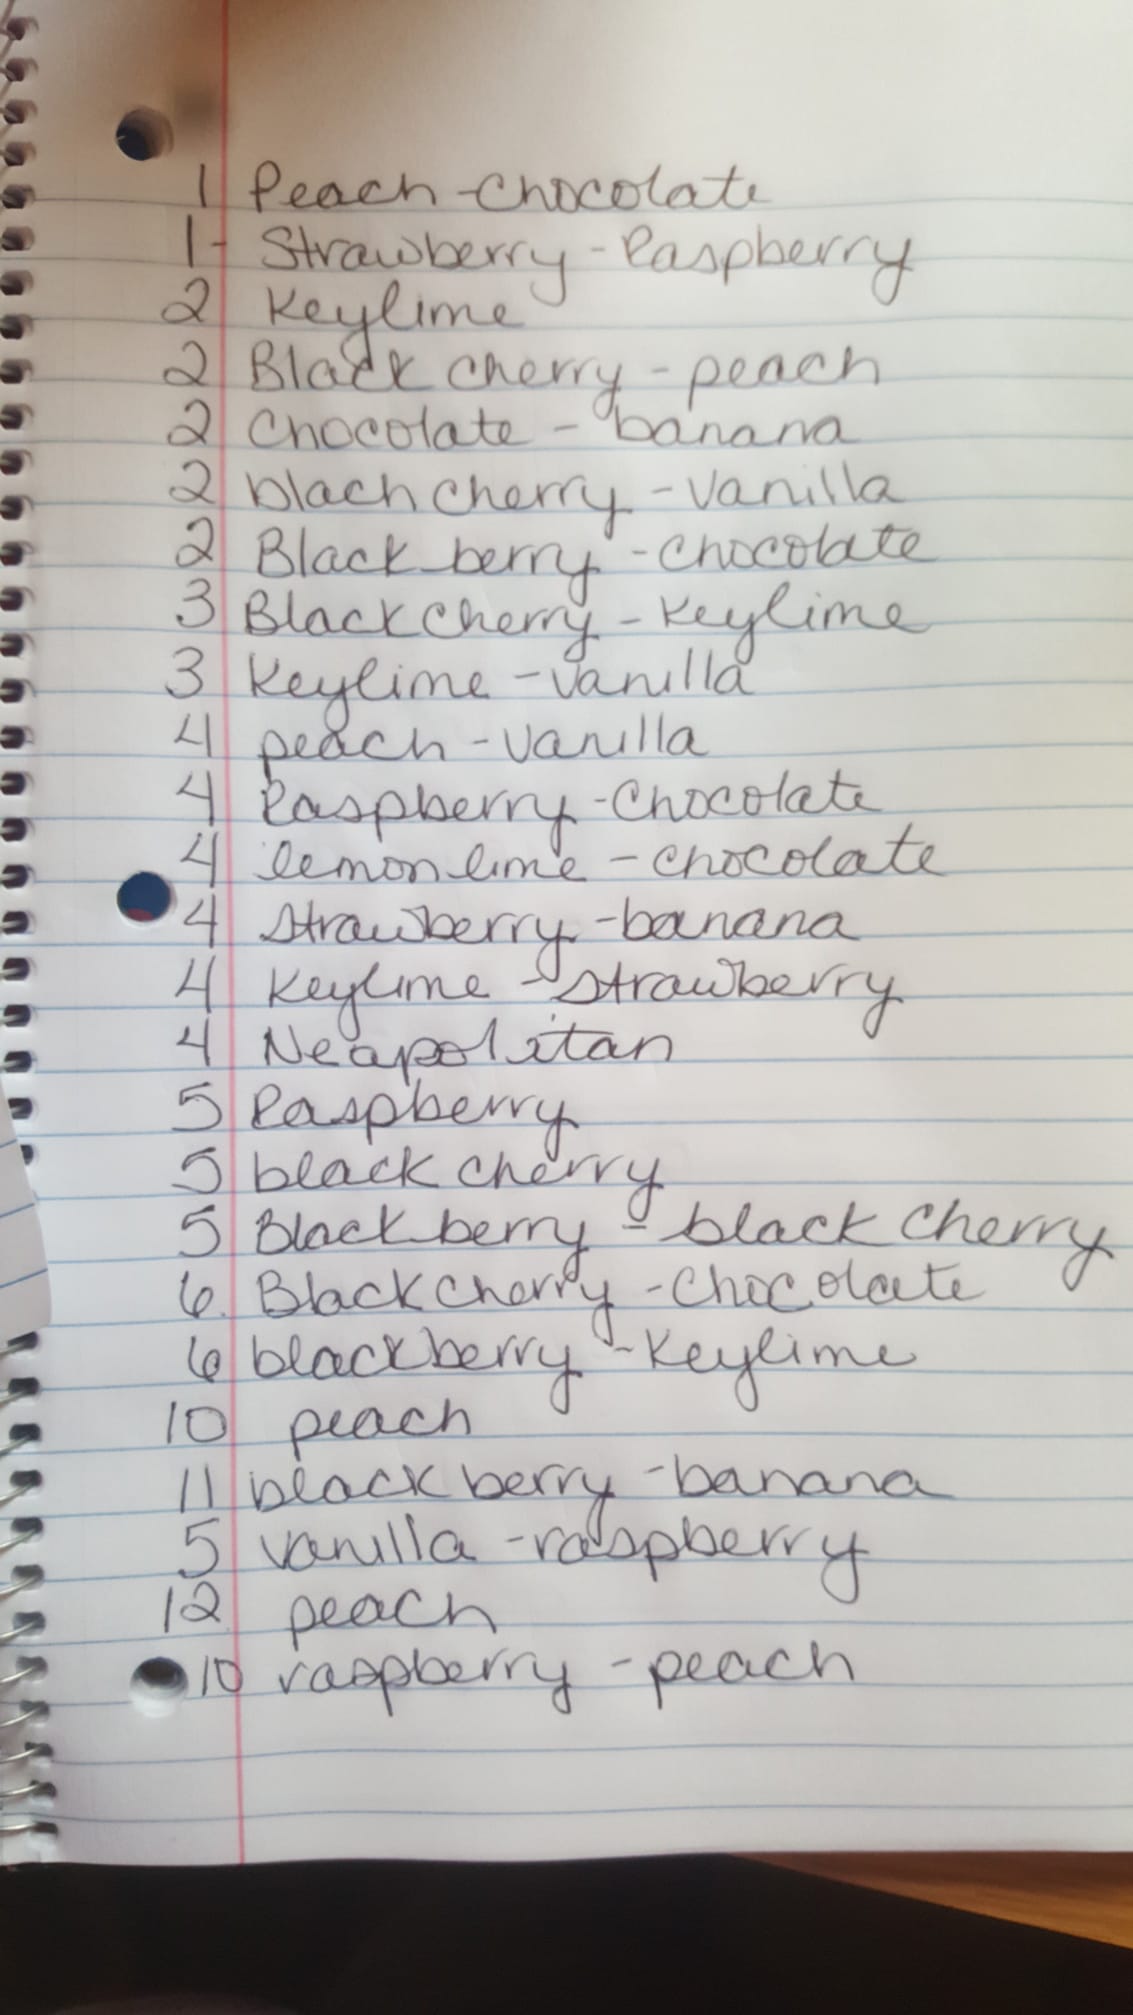 1 Peach-Chocolate
1- Strawberry-Raspberry
2 Keylime
2 Black cherry-peach
2 Chocolate-banana
2 blach cherry-Vanilla
2 Black berry-Chocolate
3 Black Cherry-Keylime
3 Keylime-Vanilla
4 peach-Vanilla
4 Raspberry-Chocolate
4 lemon lime-chocolate
4 strawberry-banana
4 Keylime-strawberry
4 Neapolitan
5 Raspberry
5 black cherry
5 Black berry-black cherry
6. Black cherry-Chocolate
6 blackberry-Keylime
10 peach
11 black berry-banana
5 vanilla-raspberry
12 peach
10 raspberry-peach